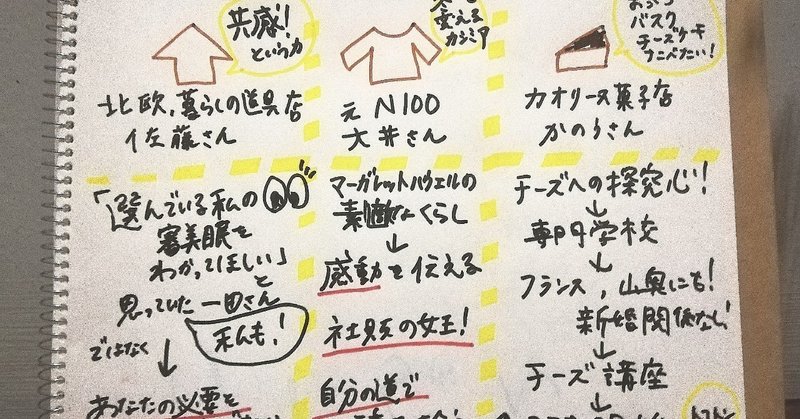 共感!
という力
北欧、暮らしの道具店
佐藤さん
「選んでいる私の
審美眼を
わかってほしい」
と
思っていた 一田さん
私も!
ではなく
↓
あなたの必要を
変える
カシミア
元 N100
大井さん
マーガレットハウエルの
素敵なくらし
↓
感動を伝える
社員の女王!
自分の道で
バスク
チーズケーキ
カオリーヌ菓子店
かのうさん
チーズへの探究心!
↓
専門学校
↓
フランス、山奥にも!
新婚関係なし!
↓
チーズ講座
↓